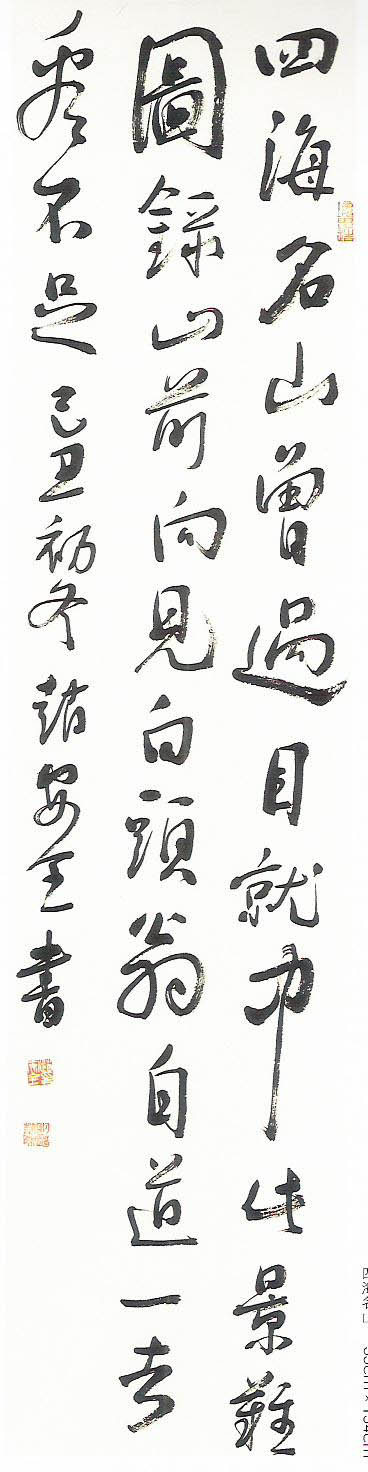 四海名山曾過目就中此景難
圖錄山前向見白頭翁自道一生
看不足 己丑初冬 書